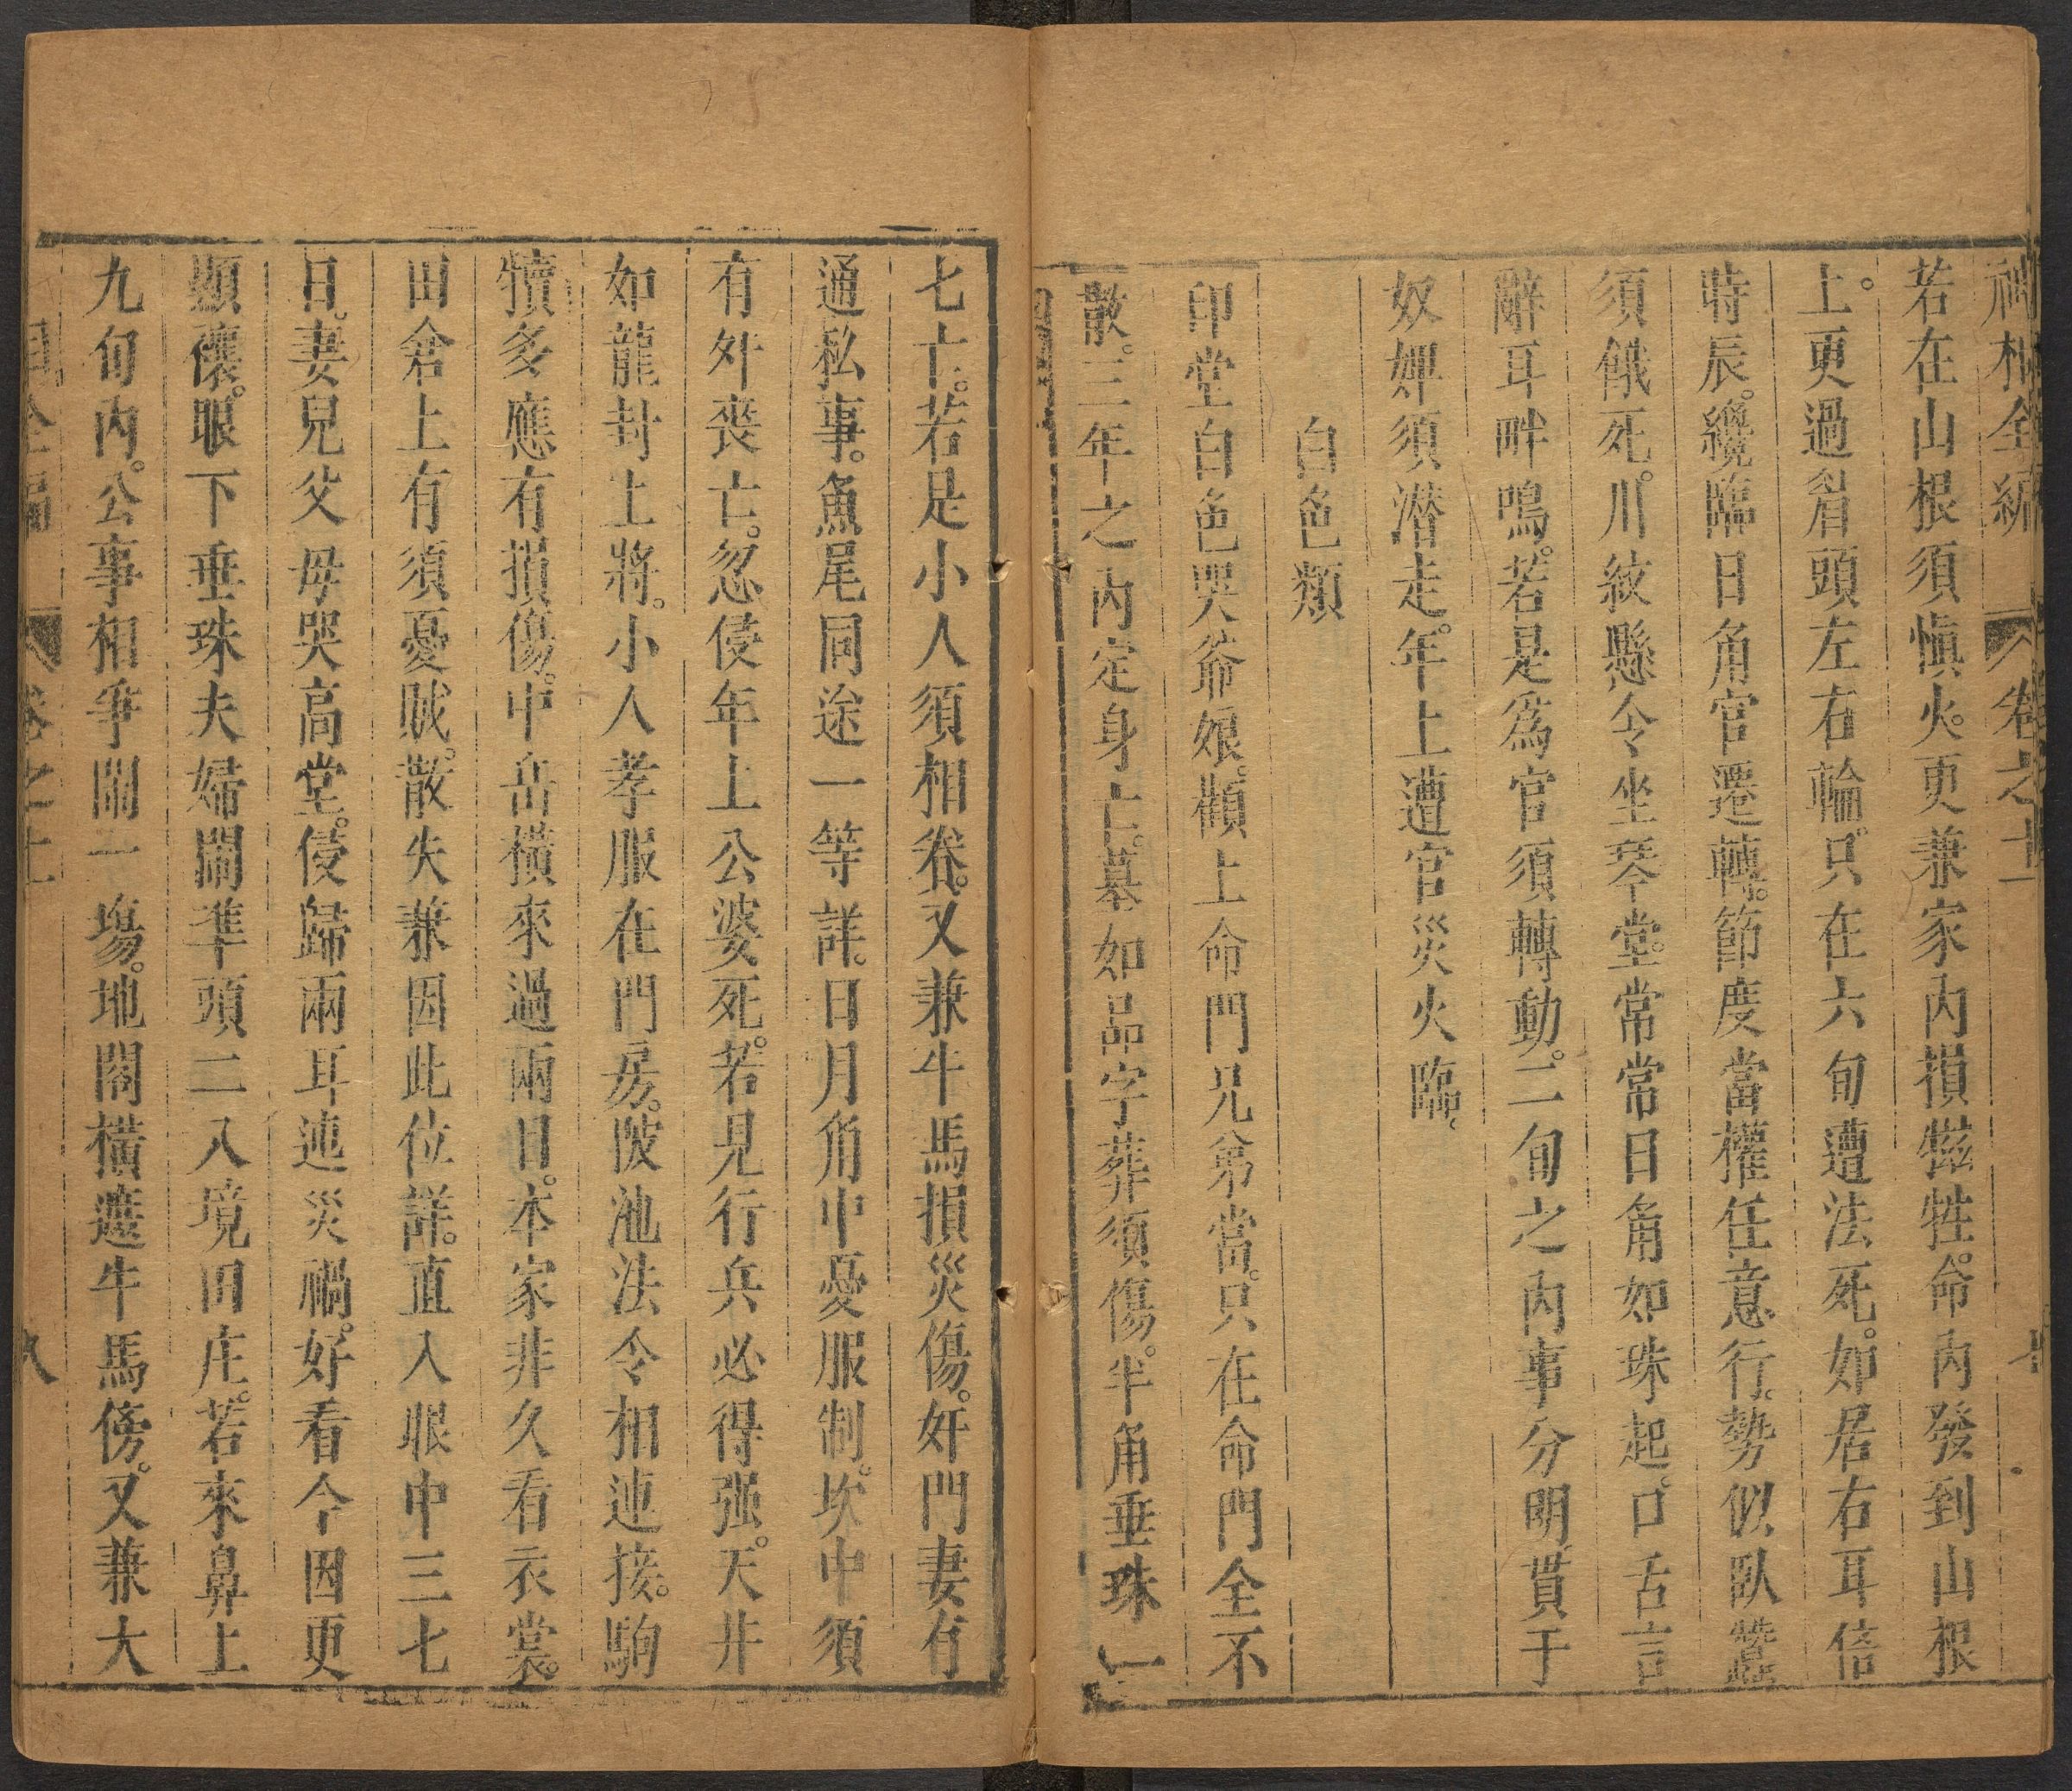 神相全編 卷之十一 十
若在山根須慎火。更兼家內損牸牲。命內發到山根
上。更過眉頭左右輪。只在六旬遭法死。如居右耳倍
時辰。纔臨日角官遷轉。節度當權任意行。勢似臥蠶
須餓死。川紋懸令坐琴堂。常常日角如珠起。口舌言
辭耳畔鳴。若是為官須轉動。二旬之內事分明。貫于
奴婢須潜走。年上遭官災火臨。
白色類
印堂白色哭爺娘。顴上命門兄弟當。只在命門全不
散。三年之內定身亡。墓如品字葬須傷。半角垂珠一
七十。若是小人須相眷。又兼牛馬損災傷。奸門妻有
通私事。魚尾同途一等詳。日月角中憂服制。坎中須
有外喪亡。忽侵年上公婆死。若見行兵必得强。天井
如龍封上將。小人孝服在門房。陂池法令相連接。駒
犢多應有損傷。中岳橫來過兩目。本家非久看衣裳。
田倉上有須憂賊。散失兼因此位詳。直入眼中三七
日。妻兒父母哭高堂。侵歸兩耳連災禍。好看今因更
顯禳。眼下垂珠夫婦鬧準頭二入境田庄。若來鼻上
九旬內。公事相爭鬧一塲。地閣橫遮牛馬傍。又兼大
相全編 卷之十一 九